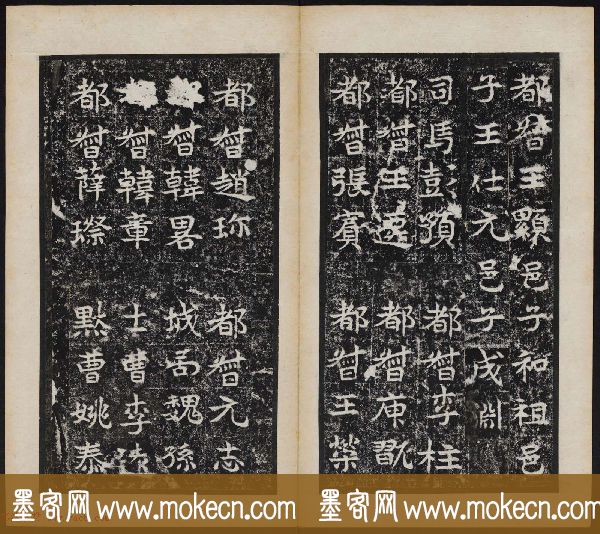 都督王顯邑子和祖邑
子王仕元邑子成淵
司馬彭預 都督李柱
都督王 都督
都督張賓 都督王榮
都督趙珎 都督元志
督韓畧 城局魏孫
督韓章 士曹李
都督薛璨 默曹姚泰
墨客网 www.mokecn.com 墨客网 www.mokecn.com